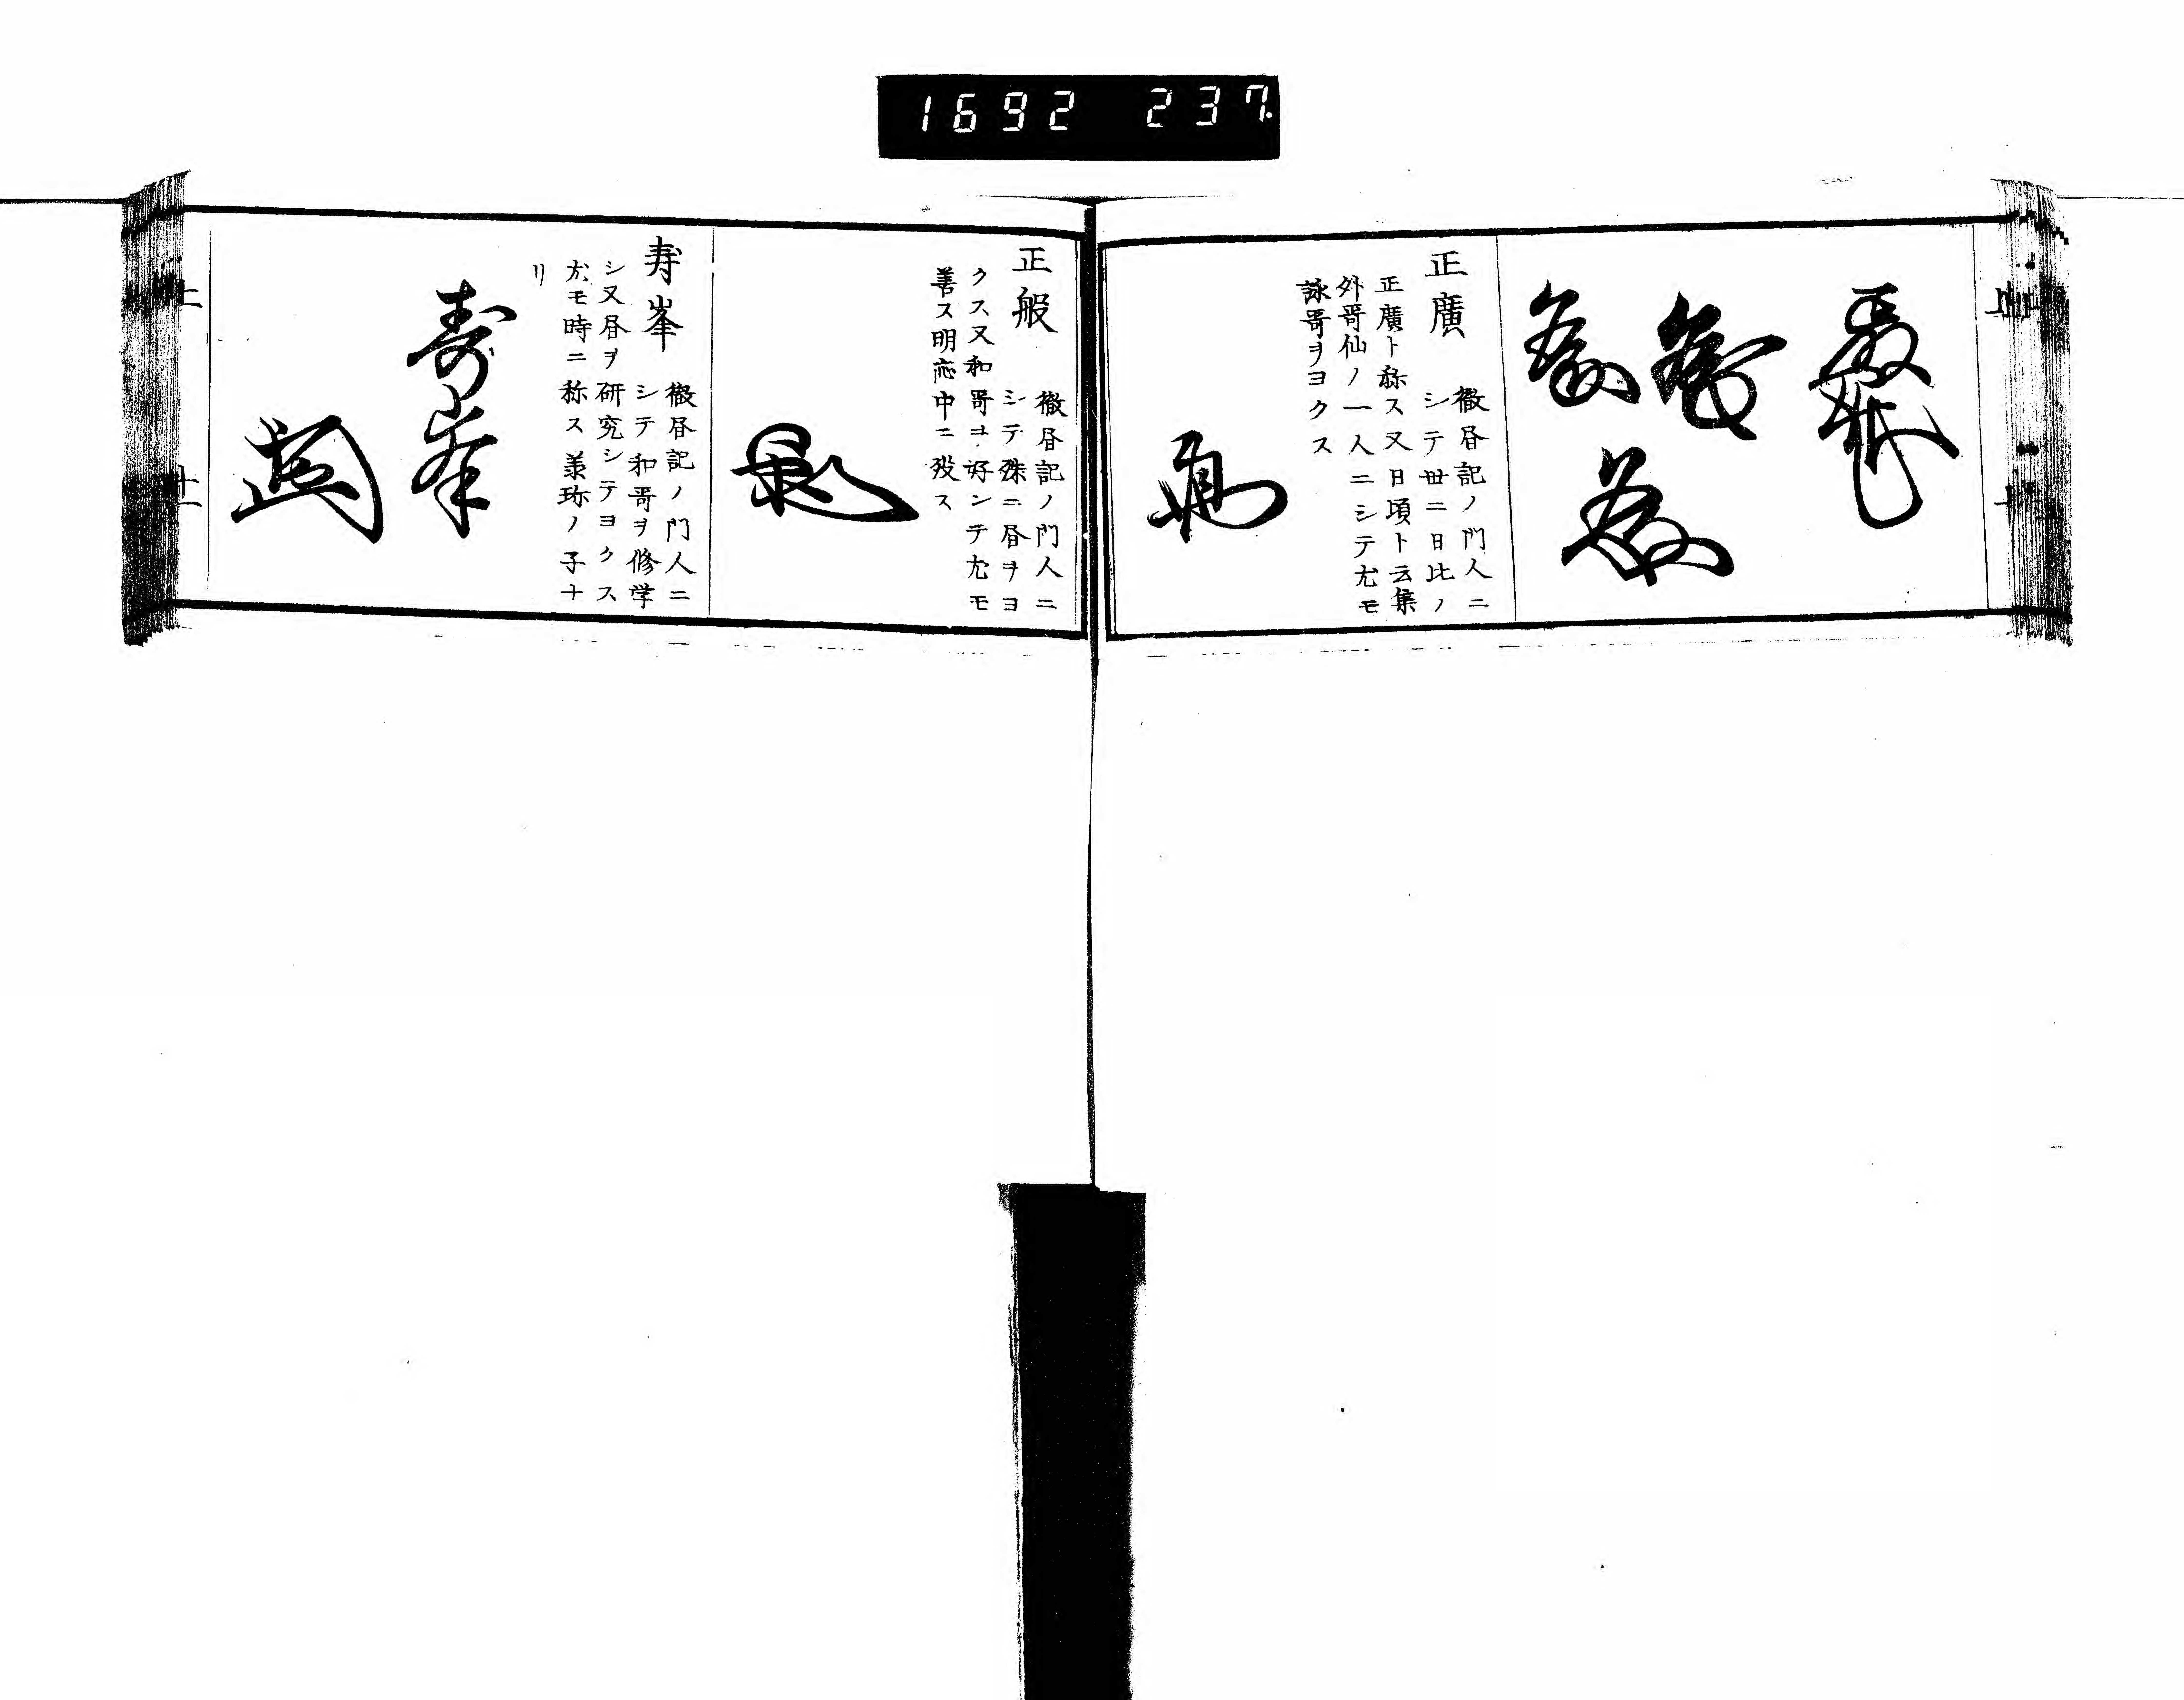 1692 237
正廣
徹昼記ノ門人ニ
シテ世ニ日比ノ
正廣ト称ス又日頃ト云集
外哥仙ノ一人ニシテ尤モ
詠哥ヲヨクス
正般
徹昼記ノ門人ニ
シテ殊ニ昼ヲヨ
クス又和哥ヲ好ンテ尤モ
善ス明応中ニ歿ス
寿峯
徹昼記ノ門人ニ
シテ和哥ヲ修学
シ又昼ヲ研究シテヨクス
尤モ時ニ称ス兼珎ノ子ナ
リ
壽峯